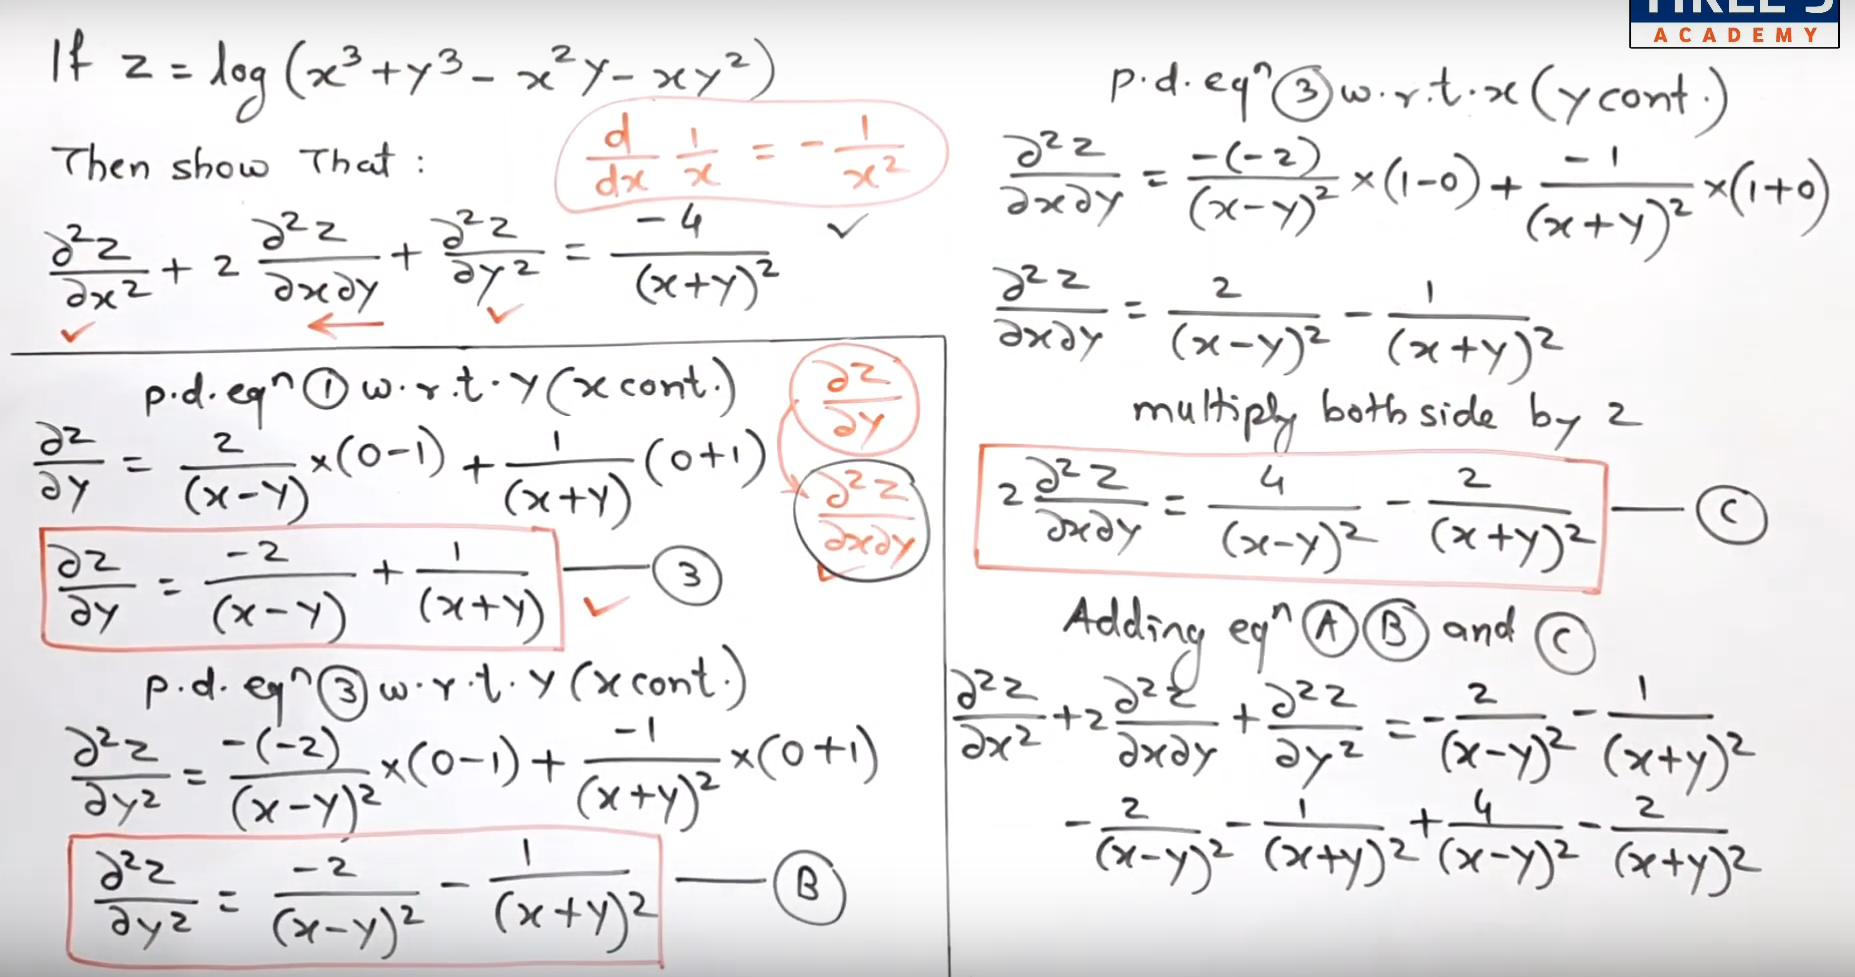 If z = log(x³+y³-x²y-xy²)
Then show That :
d/dx 1/x = -1/x²
∂²z/∂x² + 2 ∂²z/∂x∂y + ∂²z/∂y² = -4/(x+y)²
p.d.eqⁿ ① w.r.t.y (x cont.)
∂z/∂y = 2/(x-y) ×(0-1) + 1/(x+y) (0+1)
∂z/∂y
∂²z/∂x∂y
∂z/∂y = -2/(x-y) + 1/(x+y) — ③
p.d.eqⁿ ③ w.r.t.y (x cont.)
∂²z/∂y² = -(-2)/(x-y)² ×(0-1) + -1/(x+y)² ×(0+1)
∂²z/∂y² = -2/(x-y)² - 1/(x+y)² — Ⓑ
ACADEMY
p.d.eqⁿ ③ w.r.t.x (y cont.)
∂²z/∂x∂y = -(-2)/(x-y)² ×(1-0) + -1/(x+y)² ×(1+0)
∂²z/∂x∂y = 2/(x-y)² - 1/(x+y)²
multiply both side by 2
2 ∂²z/∂x∂y = 4/(x-y)² - 2/(x+y)² — Ⓒ
Adding eqⁿ Ⓐ Ⓑ and Ⓒ
∂²z/∂x² +2 ∂²z/∂x∂y + ∂²z/∂y² = -2/(x-y)² - 1/(x+y)²
-2/(x-y)² - 1/(x+y)² + 4/(x-y)² - 2/(x+y)²